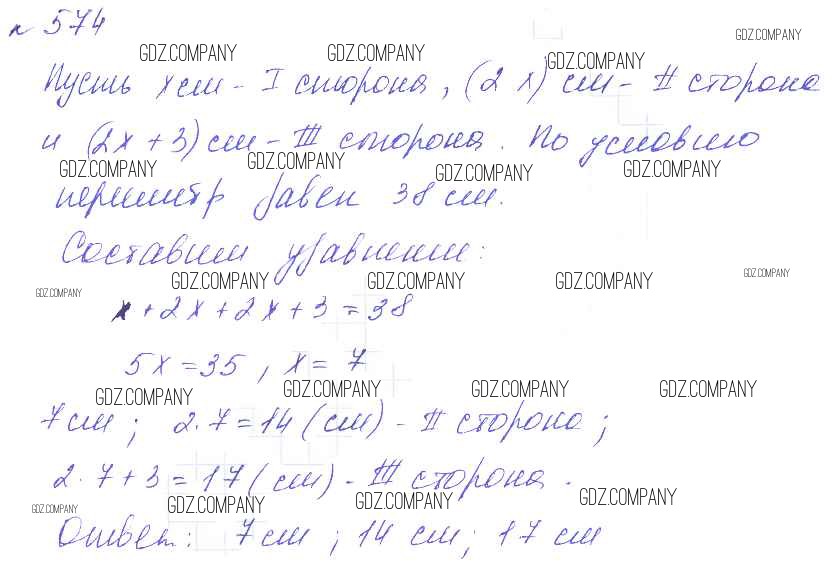 № 574
GDZ.COMPANY GDZ.COMPANY GDZ.COMPANY GDZ.COMPANY
Пусть x см - I сторона, (2x) см - II сторона
и (2x + 3) см - III сторона. По условию
GDZ.COMPANY GDZ.COMPANY GDZ.COMPANY GDZ.COMPANY
периметр равен 38 см.
Составим уравнение:
GDZ.COMPANY GDZ.COMPANY GDZ.COMPANY GDZ.COMPANY GDZ.COMPANY
x + 2x + 2x + 3 = 38
5x = 35, x = 7
GDZ.COMPANY GDZ.COMPANY GDZ.COMPANY GDZ.COMPANY
7 см; 2·7 = 14 (см) - II сторона;
2·7 + 3 = 17 (см) - III сторона.
GDZ.COMPANY GDZ.COMPANY GDZ.COMPANY GDZ.COMPANY
Ответ: 7 см; 14 см; 17 см